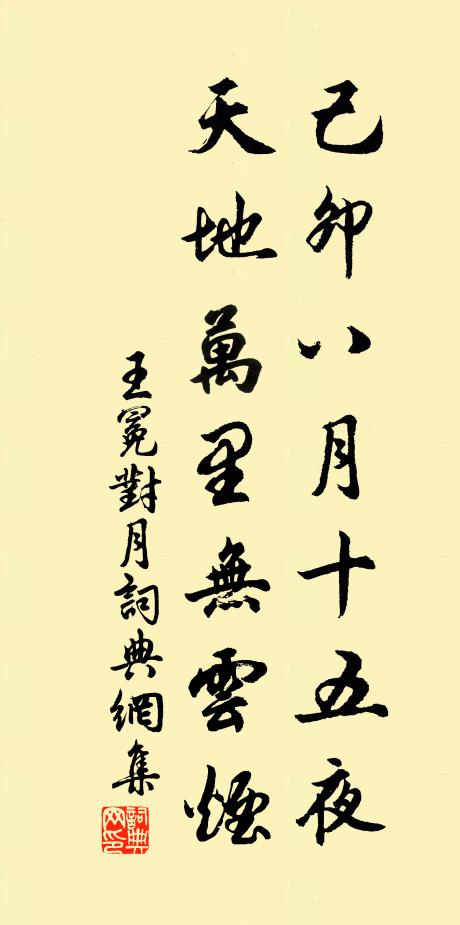 己卯八月十五夜
天地萬里無雲煙
王冕對月詞典網集
詞典网印